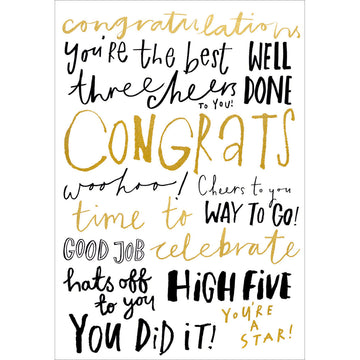 congratulations
you're the best WELL
three cheers DONE
TO YOU!
CONGRATS
woohoo! Cheers to you
time to WAY TO GO!
GOOD JOB celebrate
hats off HIGH FIVE
to you YOU'RE
A
YOU DID IT! STAR!